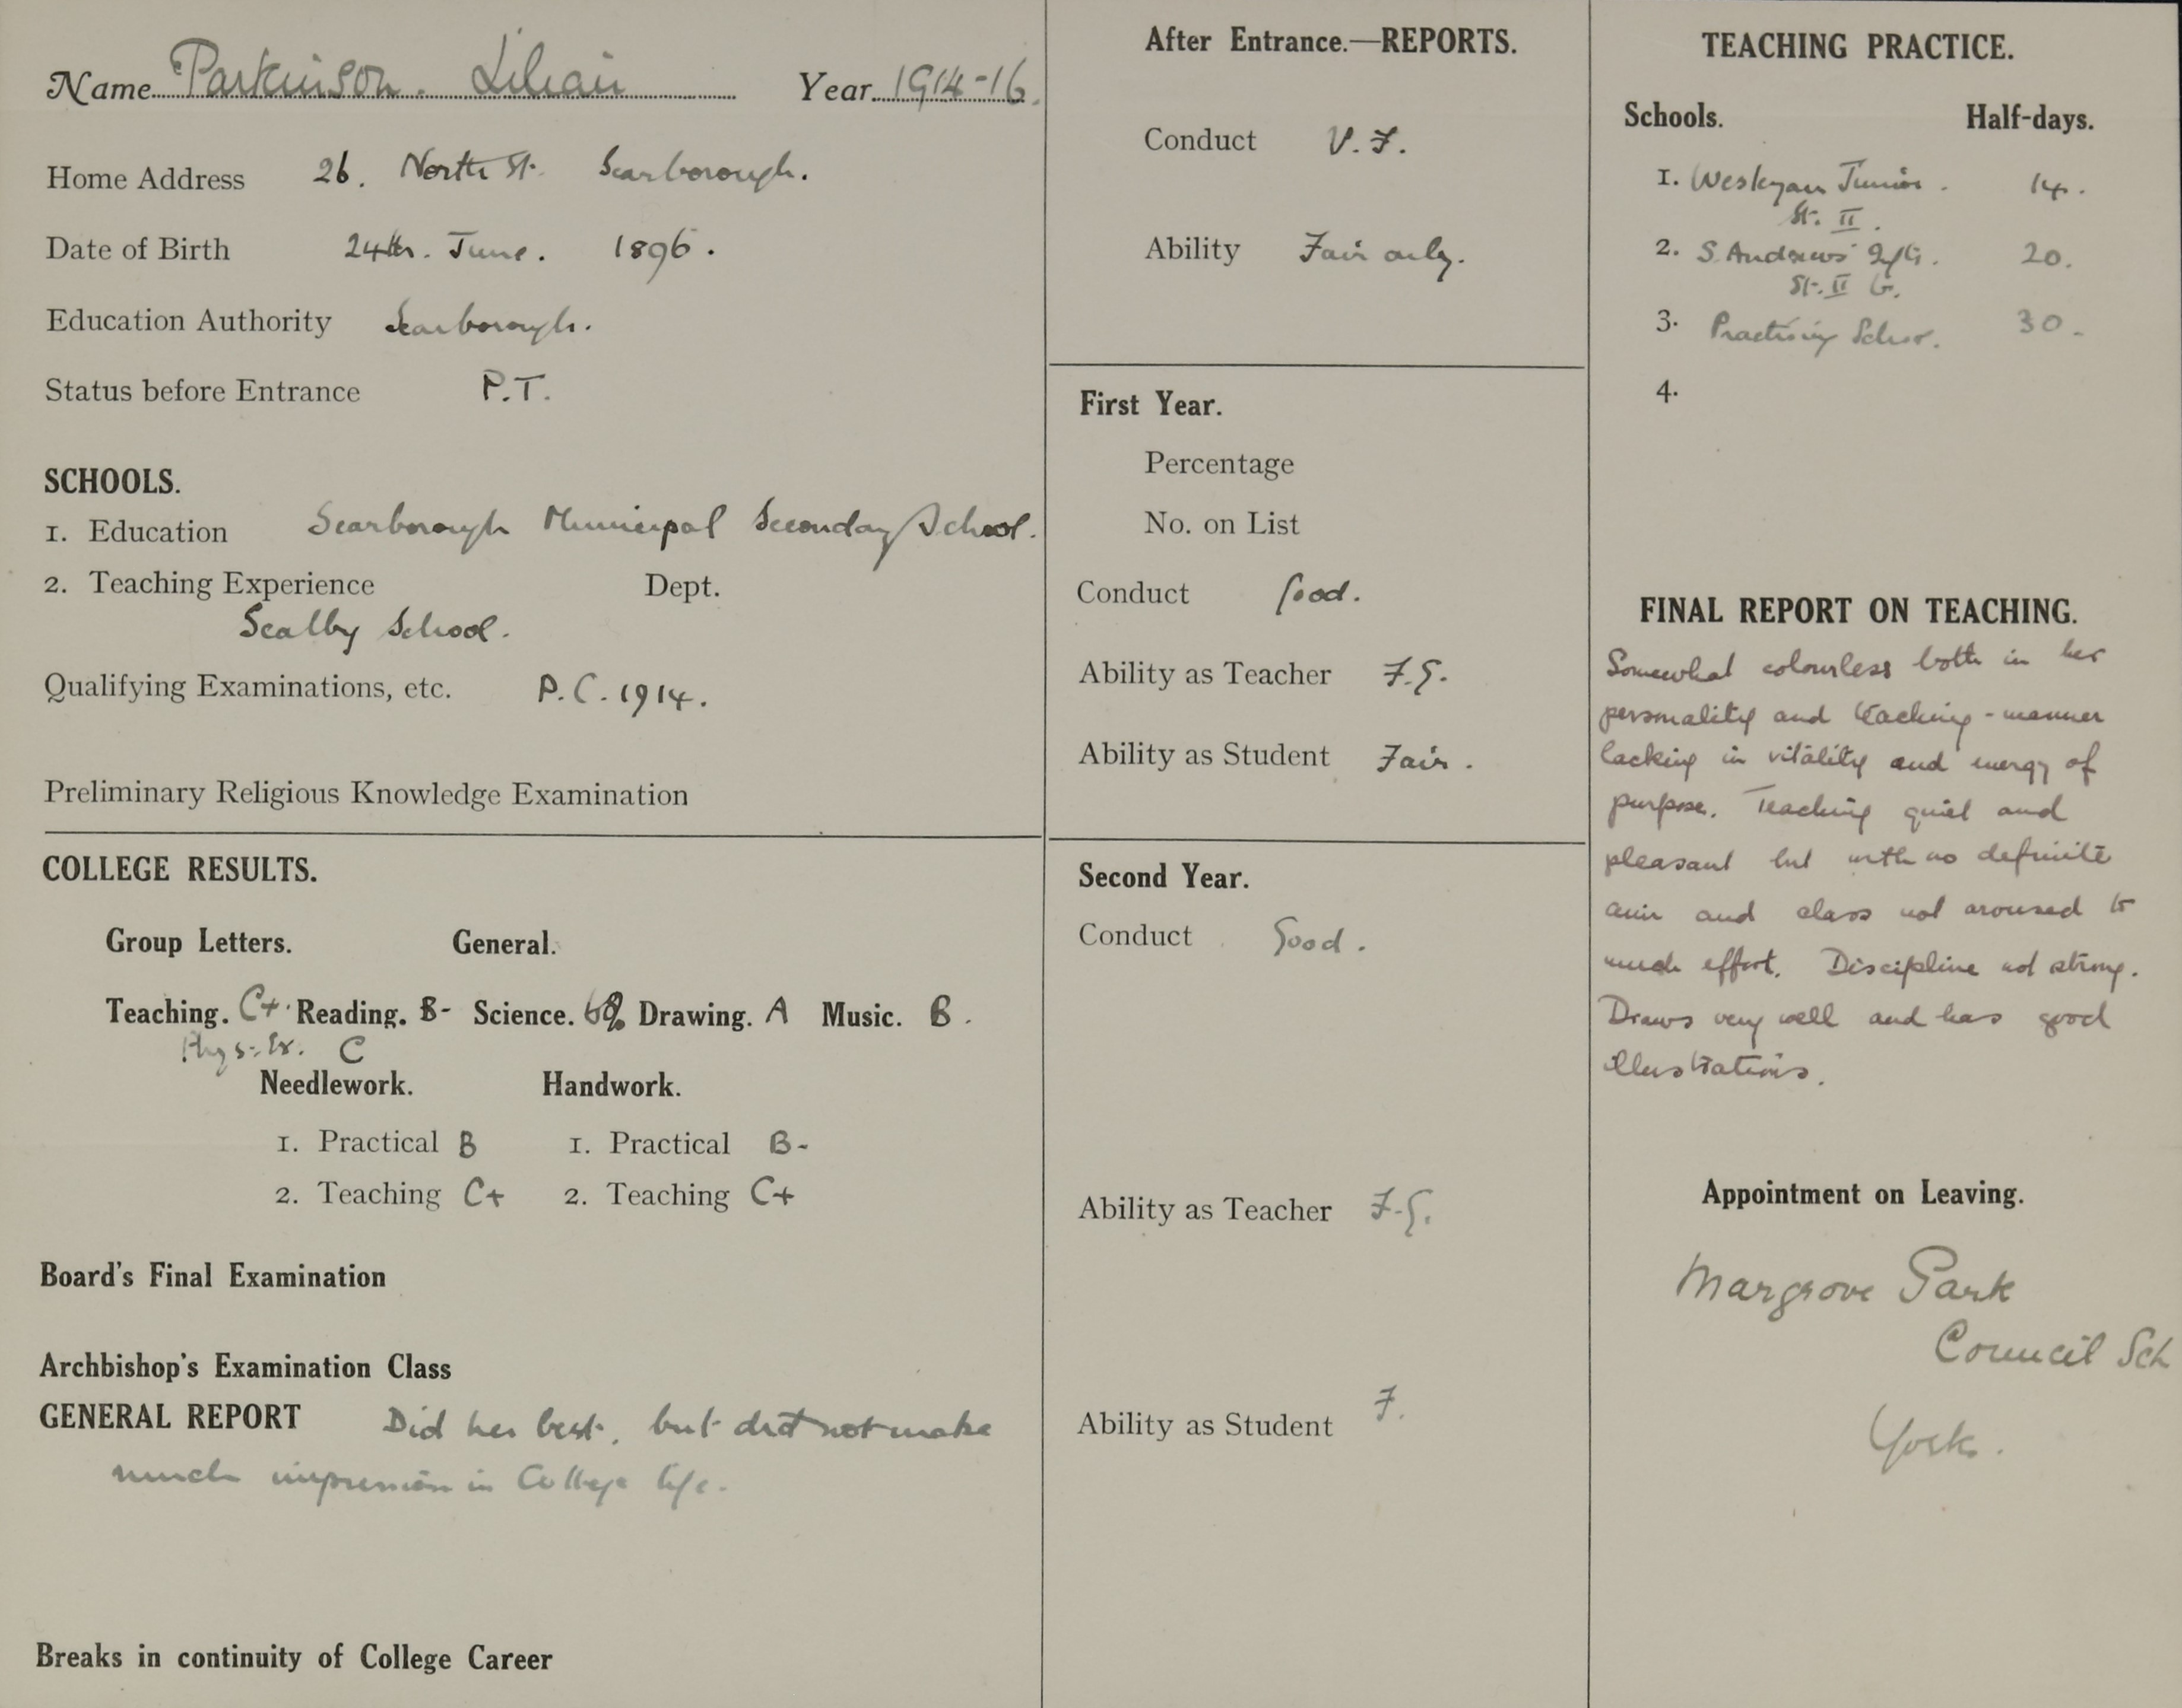 Name Parkinson. Lilian Year 1914-16.
Home Address 26. North St. Scarborough.
Date of Birth 24th. June. 1896.
Education Authority Scarborough.
Status before Entrance P.T.
SCHOOLS.
1. Education Scarborough Municipal Seconday School.
2. Teaching Experience Dept.
Scalby School.
Qualifying Examinations, etc. P.C. 1914.
Preliminary Religious Knowledge Examination
COLLEGE RESULTS.
Group Letters. General.
Teaching. C+. Reading. B- Science. Drawing. A Music. B.
Phys: Ex. C
Needlework. Handwork.
1. Practical B 1. Practical B-
2. Teaching C+ 2. Teaching C+
Board's Final Examination
Archbishop's Examination Class
GENERAL REPORT Did her best, but did not make
much impression in College life.
Breaks in continuity of College Career
After Entrance.—REPORTS.
Conduct V.F.
Ability Fair only.
First Year.
Percentage
No. on List
Conduct Good.
Ability as Teacher F.G.
Ability as Student Fair.
Second Year.
Conduct Good.
Ability as Teacher F.G.
Ability as Student F.
TEACHING PRACTICE.
Schools. Half-days.
1. Wesleyan Junior. 14.
St. II.
2. S. Andrews' 20.
St. II G.
3. Practising School. 30.
4.
FINAL REPORT ON TEACHING.
Somewhat colourless both in her
personality and teaching-manner
lacking in vitality and energy of
purpose. Teaching quiet and
pleasant but with no definite
aim and class not aroused to
much effort. Discipline not strong.
Draws very well and has good
illustrations.
Appointment on Leaving.
Margrove Park
Council Sch
Yorks.